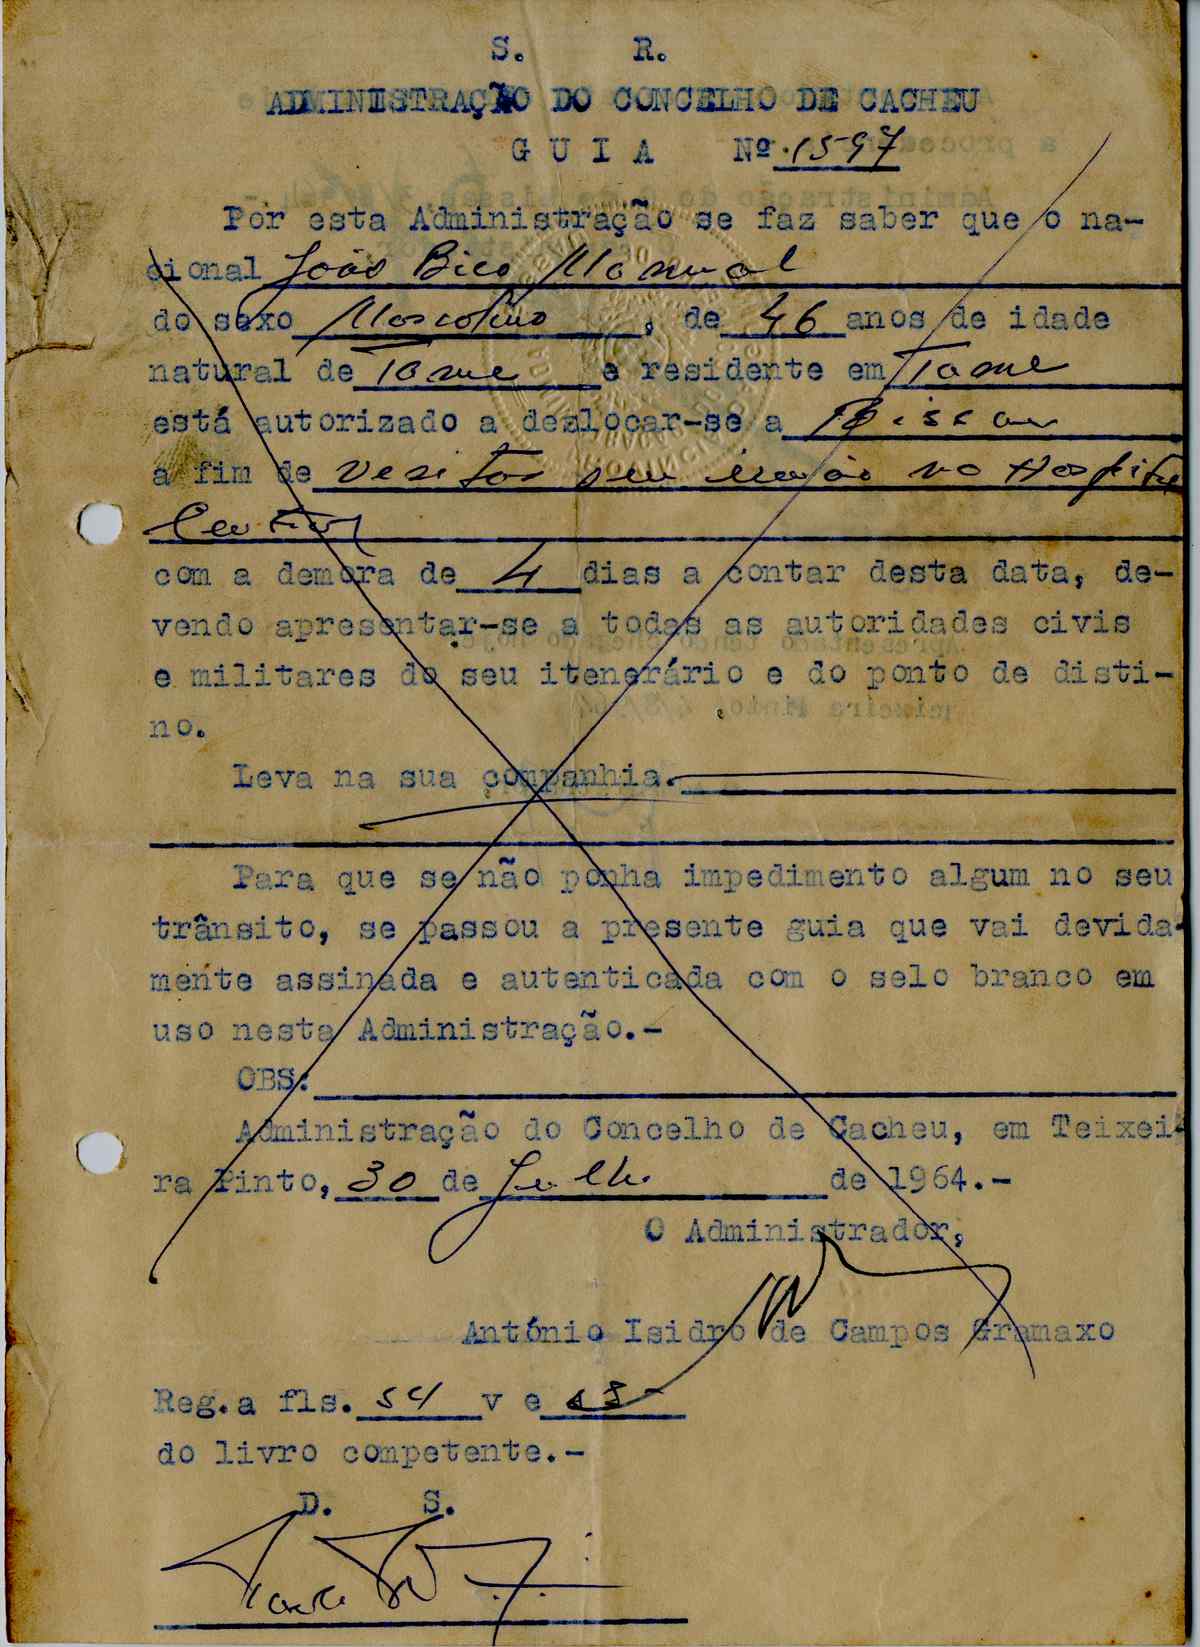 S. R.
ADMINISTRAÇÃO DO CONCELHO DE CACHEU
GUIA Nº.1597
Por esta Administração se faz saber que o na-
cional João Bico Manual
do sexo Masculino, de 46 anos de idade
natural de Tame e residente em Tame
está autorizado a dezlocar-se a Bissau
a fim de vesitar seu irmão no Hospital
Central
com a demora de 4 dias a contar desta data, de-
vendo apresentar-se a todas as autoridades civis
e militares do seu itenerário e do ponto de disti-
no.
Leva na sua companhia.
Para que se não ponha impedimento algum no seu
trânsito, se passou a presente guia que vai devida-
mente assinada e autenticada com o selo branco em
uso nesta Administração.-
OBS:
Administração do Concelho de Cacheu, em Teixei-
ra Pinto, 30 de Julho de 1964.-
O Administrador,
António Isidro de Campos Gramaxo
Reg.a fls. 54 v e
do livro competente.-
D. S.